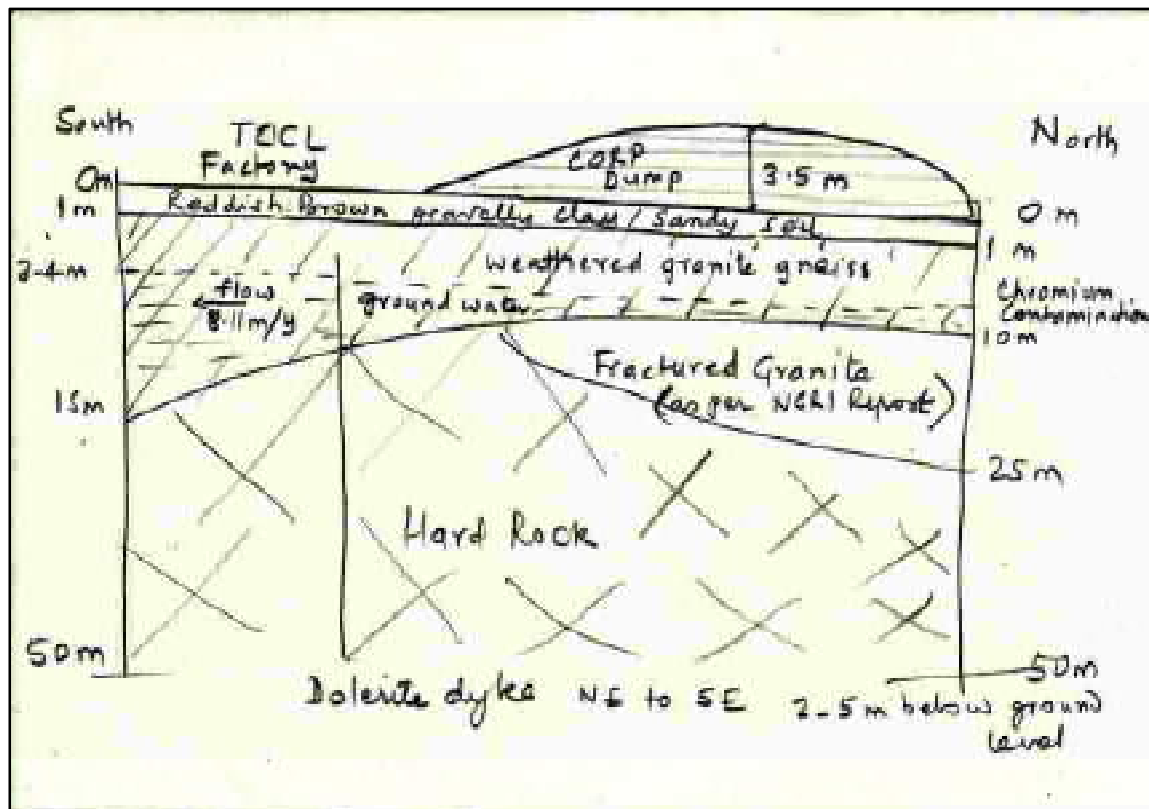 South
North
TCCL
Factory
CORP
Dump
3.5 m
0m
0 m
1m
Reddish Brown gravelly class / Sandy Soil
1 m
weathered granite gneiss
2-4m
flow
8.11m/y
ground water
Chromium
Contamination
10m
Fractured Granite
(as per NGRI Report)
15m
25m
Hard Rock
50m
50m
Dolerite dyke NE to SE 2-5m below ground
level